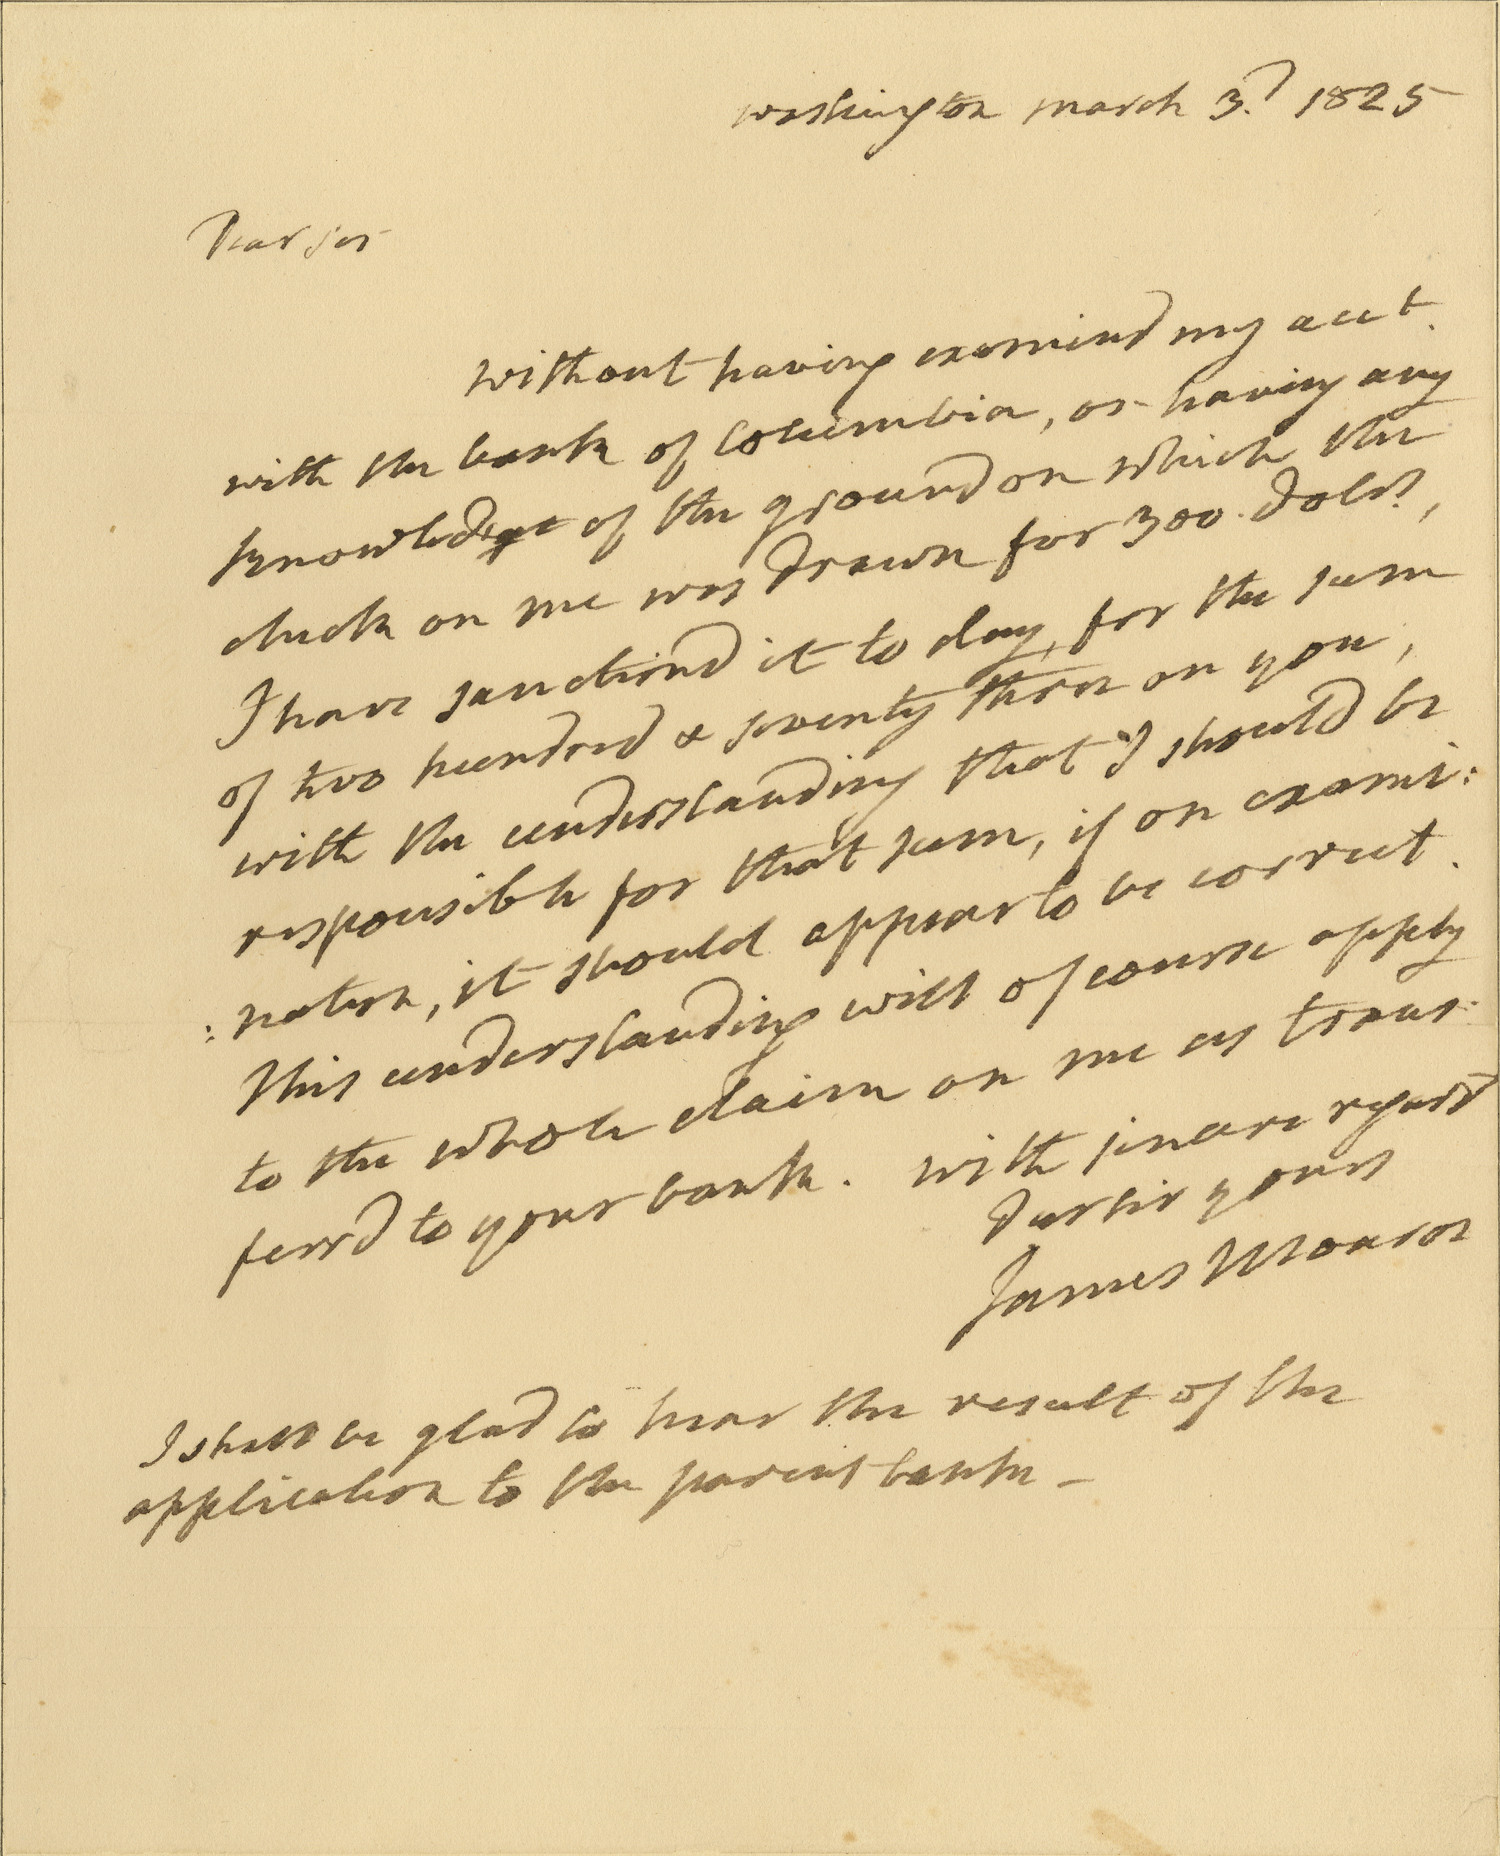 Washington march 3.d 1825
Dear Sir
without having examined my acct.
with the bank of Columbia, or having any
knowledge of the ground on which the
check on me was drawn for 300. dolrs,
I have sanctiond it to day, for the sum
of two hundred & seventy three on you,
with the understanding that I should be
responsible for that sum, if on exami:
:nation, it should appear to be correct.
This understanding will of course apply
to the whole claim on me as trans-
ferrd to your bank. with sincere regard
Dear Sir yours
James Monroe
I shall be glad to hear the result of the
application to the parent bank -